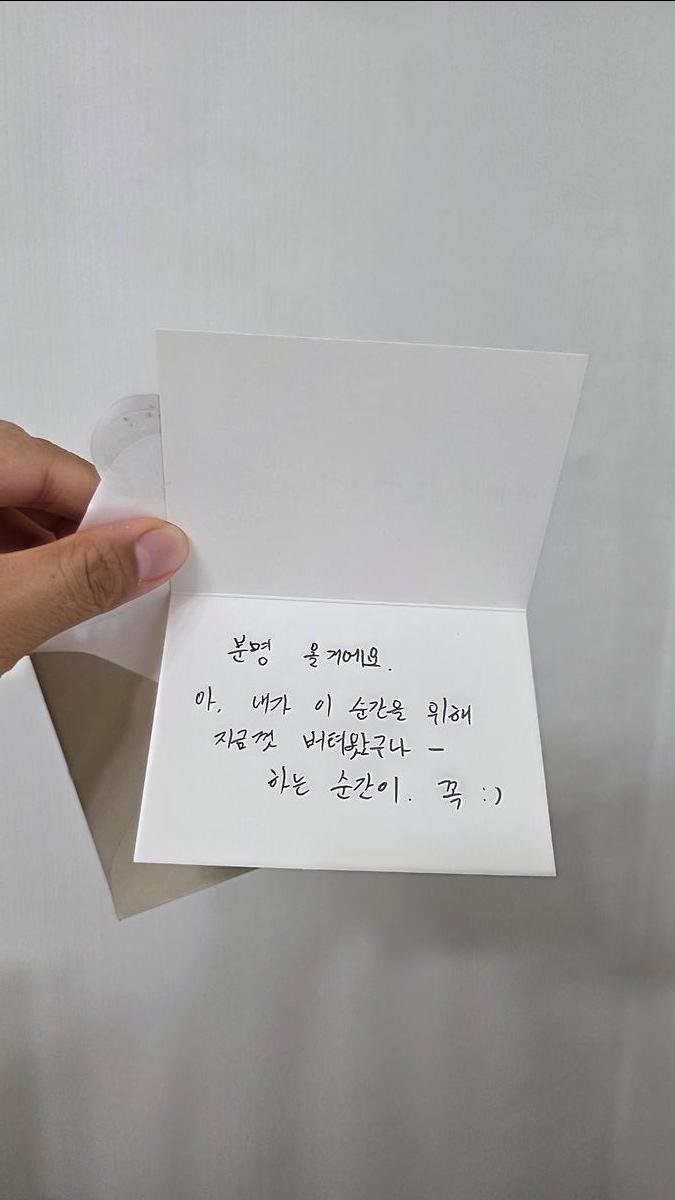 분명 올거에요.
아. 내가 이 순간을 위해
지금껏 버텨왔구나 -
하는 순간이. 꼭 :)